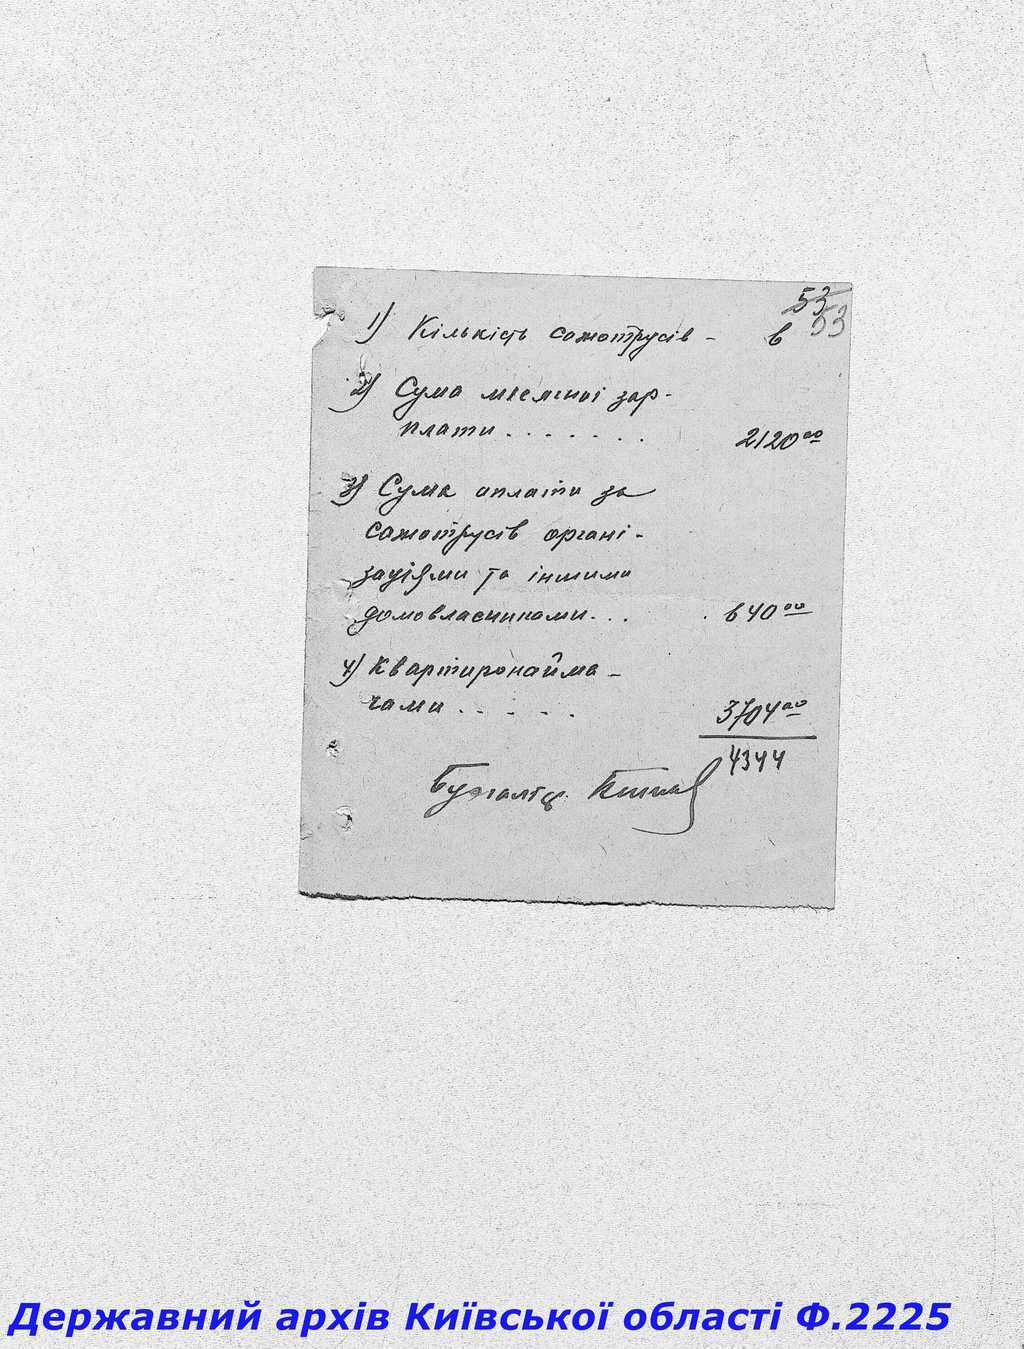 53
53
1) Кількість сажотрусів - 6
2) Сума місячної зар-
плати . . . . . . . 2120 00
3) Сума оплати за
сажотрусів органі-
заціями та іншими
домовласниками . . . 640 00
4) Квартиронайма-
чами . . . . . 3704 00
4344
Бухгалтер
Державний архів Київської області Ф.2225